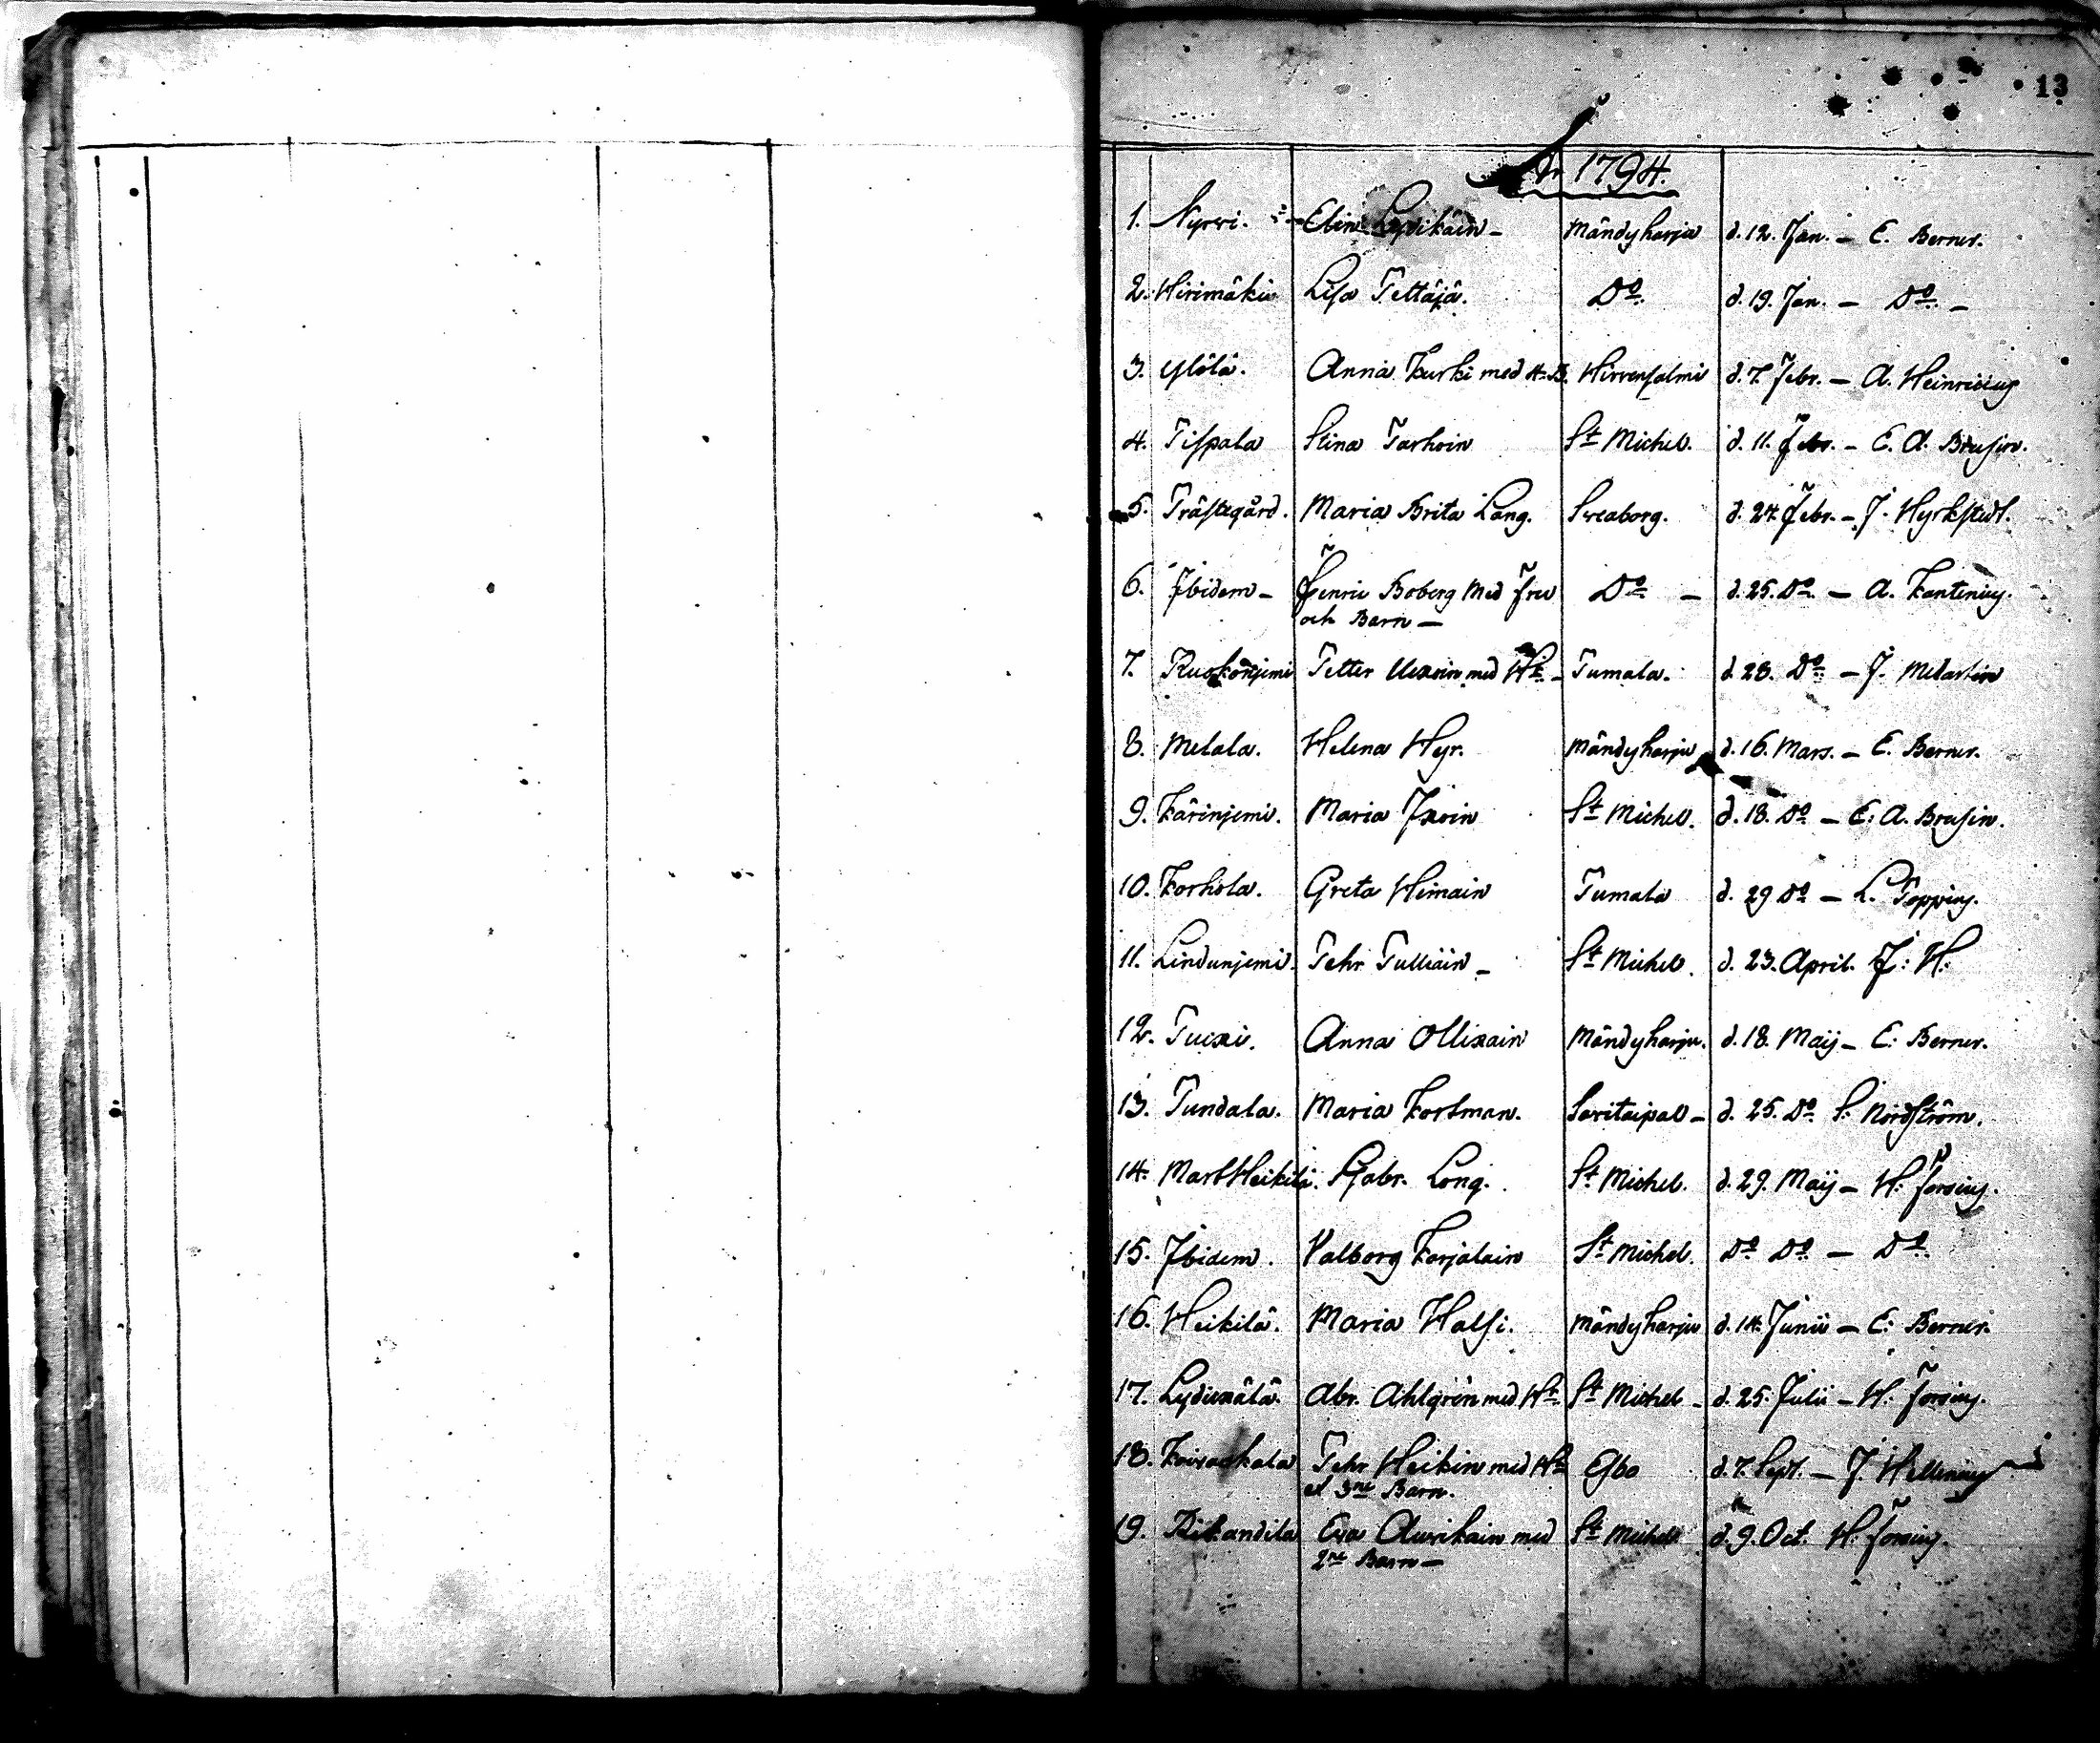 13
År 1794.
1. Nyrri. Elin Lyikäin - Mändyharju d. 12. Jan. - E. Berner.
2. Hirimäki Lisa Pettäjä. Do. d. 19. Jan. - Do. -
3. Ylölä. Anna Kurki med H. B. Hirvensalmi d. 7. Febr. - A. Heinricius
4. Pispala Stina Parhoin St Michel. d. 11. Febr. - E. A. Brusin.
5. Prästegård. Maria Brita Lang. Sveaborg. d. 24. Febr. - J. Hyrkstedt.
6. Ibidem - Henric Boberg med Fru Do - d. 25. Do - A. Kantenius.
och Barn -
7. Ruokonjemi Petter Uexoin med Ha - Pumala. d. 28. Do - J. Melartin
8. Melala. Helena Hyr. Mändyharju d. 16. Mars. - E. Berner.
9. Kärinjemi. Maria Ixoin St Michel. d. 18. Do - E. A. Brusin.
10. Korhola. Greta Heimain Pumala d. 29 Do - L. Poppius.
11. Lindunjemi. Pehr Pulliäin - St Michel. d. 23. April. J: H:
12. Puuxi. Anna Ollixain Mändyharju. d. 18. Maij - E: Berner.
13. Pundala. Maria Kortman. Savitaipal - d. 25. Do S. Nordström.
14. Mart Heikilä. Gabr. Long. St Michel. d. 29. Maij - H. Forsius.
15. Ibidem. Valborg Karjalain St Michel. Do Do - Do
16. Heikilä. Maria Halsi. Mändyharju d. 14. Junii - E: Berner.
17. Lyduxälä. Abr. Ahlgrén med Ha St Michel - d. 25. Julii - H. Forsius.
18. Koivackala Pehr Heikin med Ha Esbo d. 7. Sept. - J. Hellenius
et 3ne Barn.
19. Rikandila Eva Auvikain med St Michel d. 9. Oct. H. Forsius.
2ne Barn -